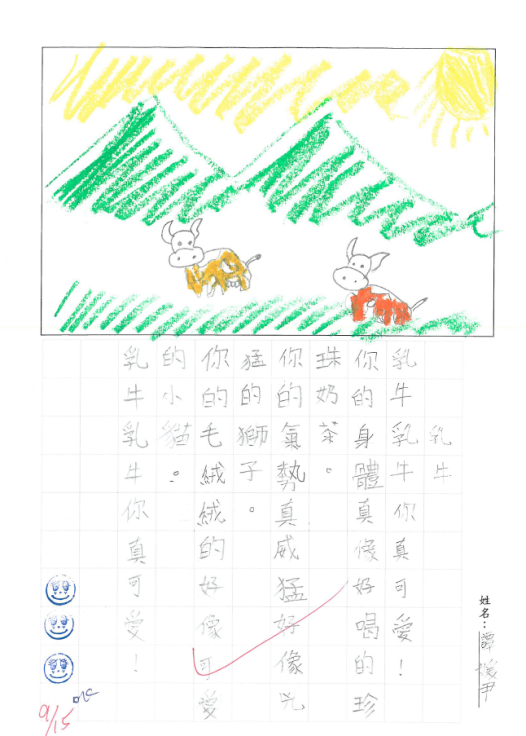 乳牛
乳牛乳牛你真可愛！
你的身體真好喝的珍
珠奶茶。
你的氣勢真威猛好像兇
猛的獅子。
你的毛絨絨的好像可愛
的小貓。
乳牛乳牛你真可愛！
姓名：譚尹
9/15